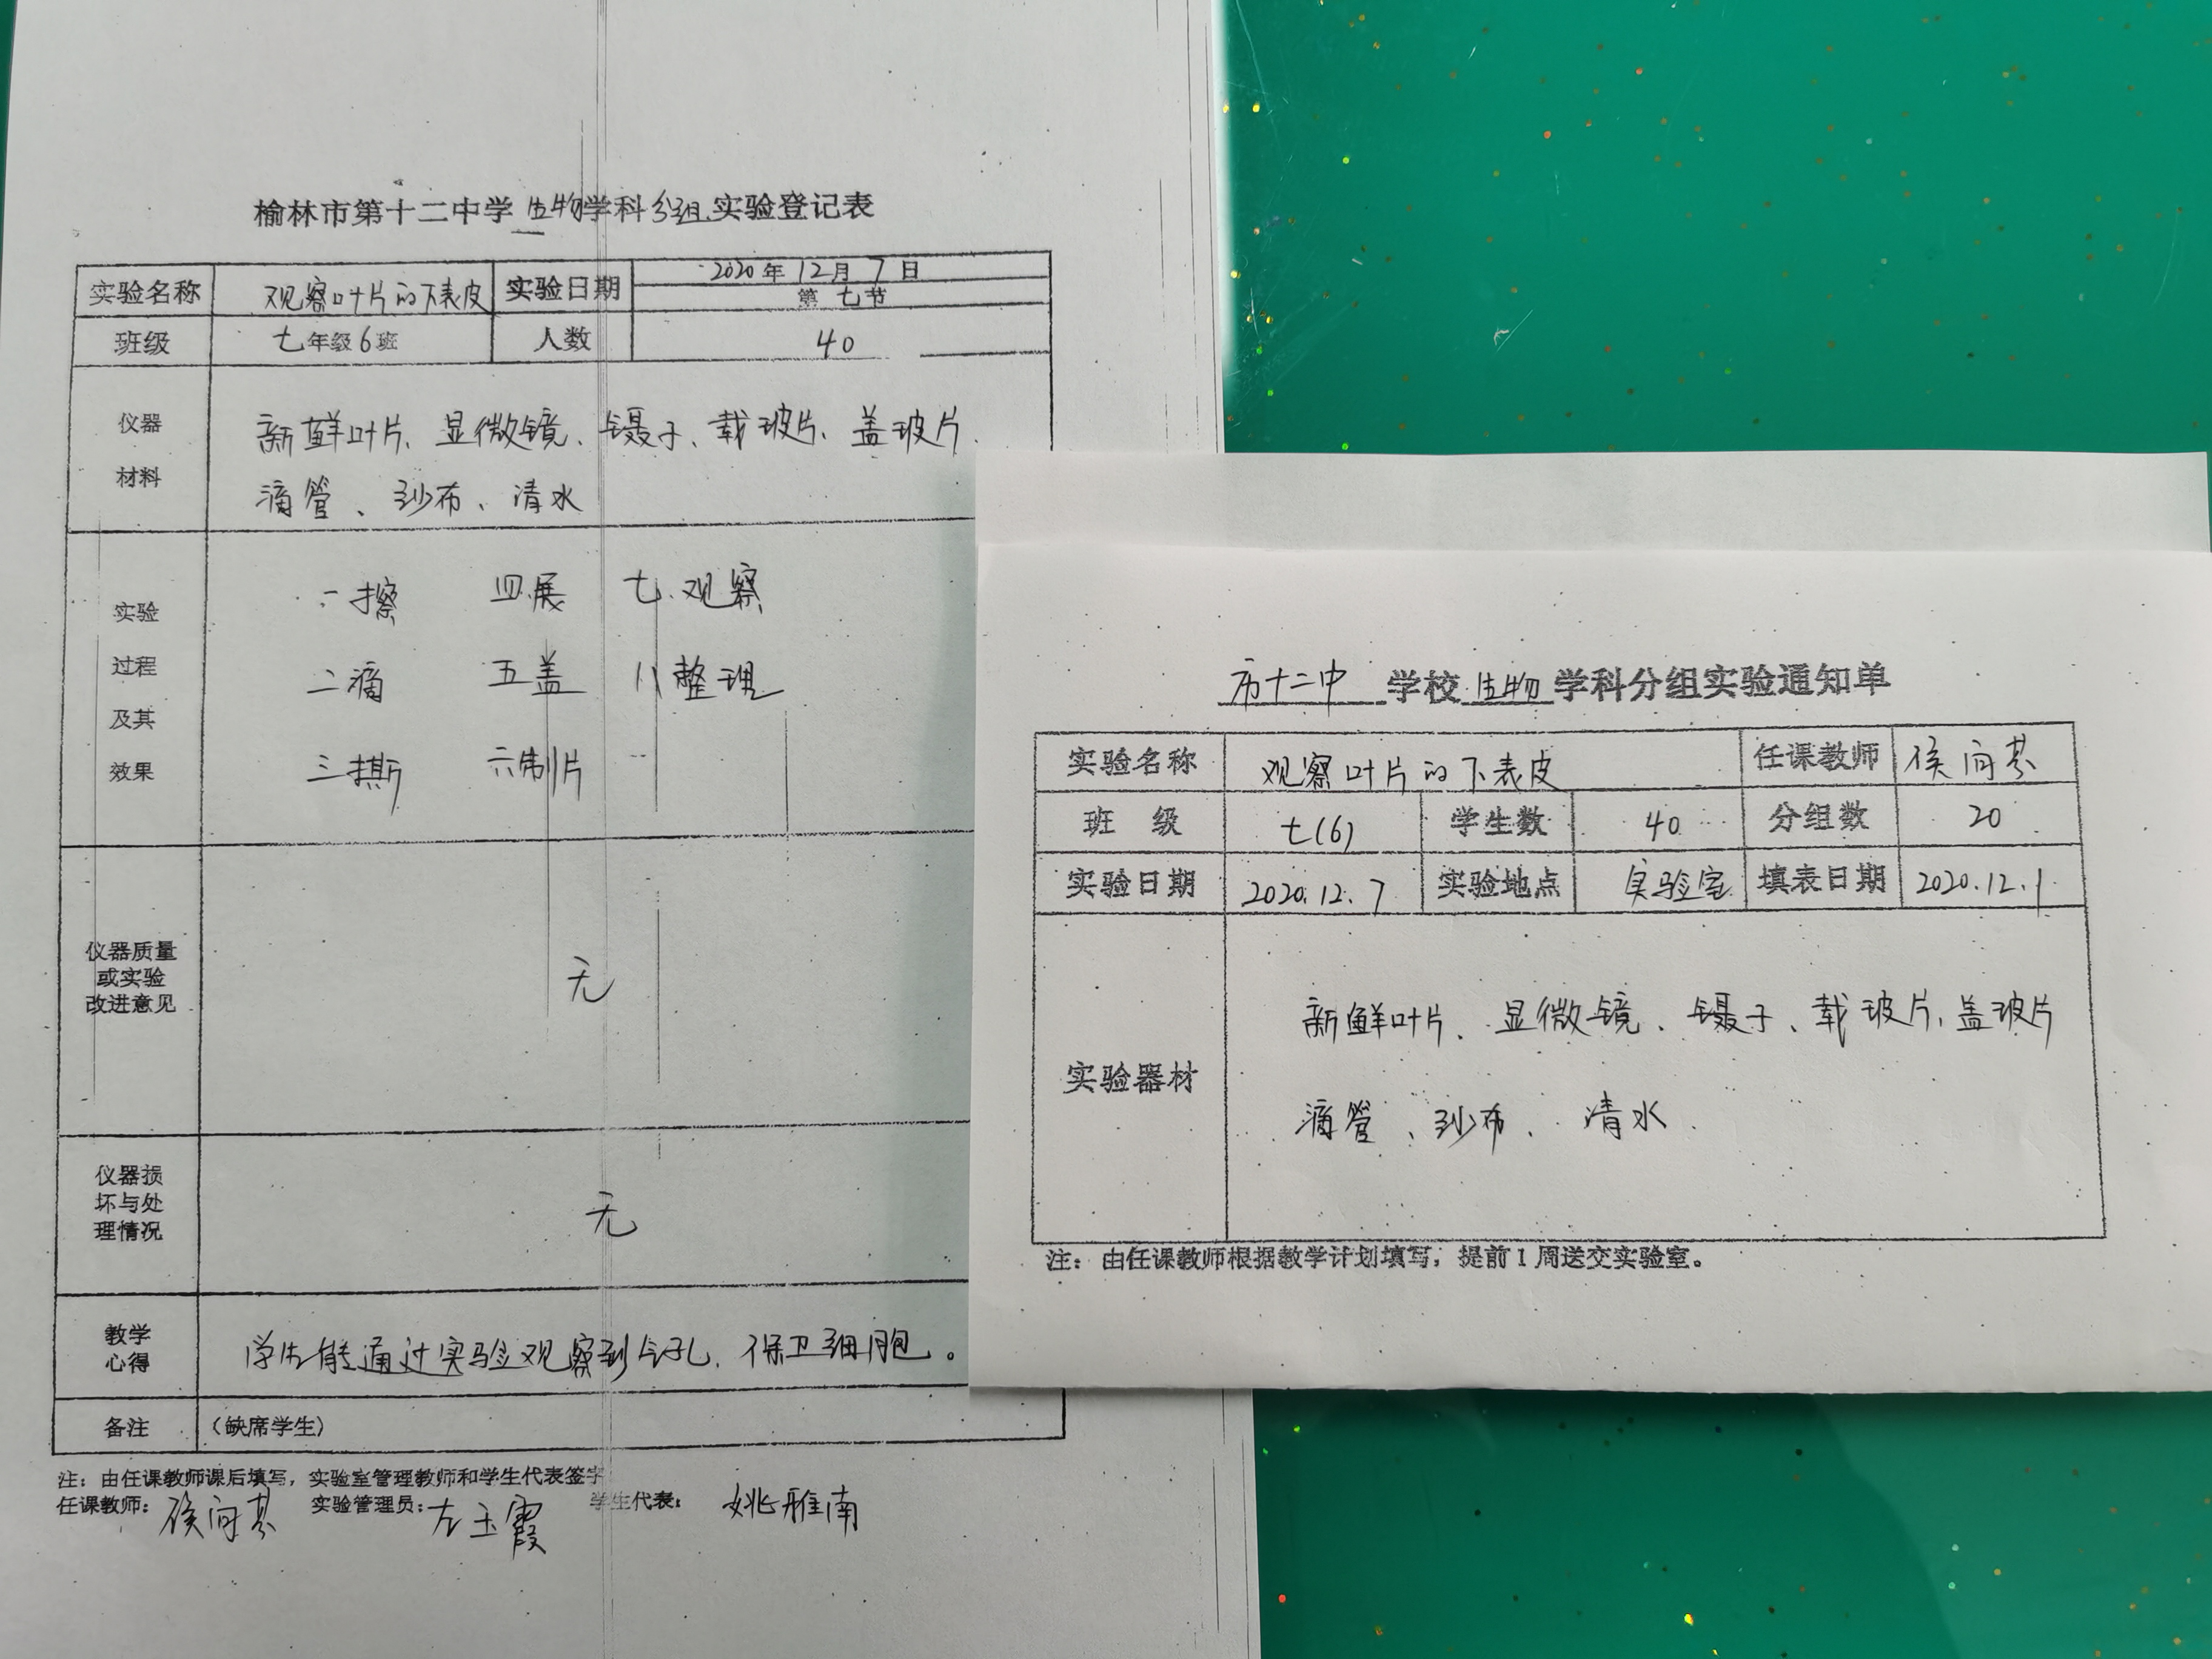 榆林市第十二中学生物学科分组实验登记表
实验名称 观察叶片的下表皮 实验日期 2020年12月7日
第七节
班级 七年级6班 人数 40
仪器材料 新鲜叶片、显微镜、镊子、载玻片、盖玻片、
滴管、纱布、清水
实验过程及其效果
一擦 四展 七.观察
二滴 五盖 八整理
三撕 六制片
仪器质量或实验改进意见 无
仪器损坏与处理情况 无
教学心得 学生能通过实验观察到气孔、保卫细胞。
备注 (缺席学生)
注：由任课教师课后填写，实验室管理教师和学生代表签字
任课教师： 实验管理员：左玉霞 学生代表：姚雅南
市十二中学校生物学科分组实验通知单
实验名称 观察叶片的下表皮 任课教师
班级 七(6) 学生数 40 分组数 20
实验日期 2020.12.7 实验地点 实验室 填表日期 2020.12.1
实验器材 新鲜叶片、显微镜、镊子、载玻片、盖玻片
滴管、纱布、清水
注：由任课教师根据教学计划填写，提前1周送交实验室。